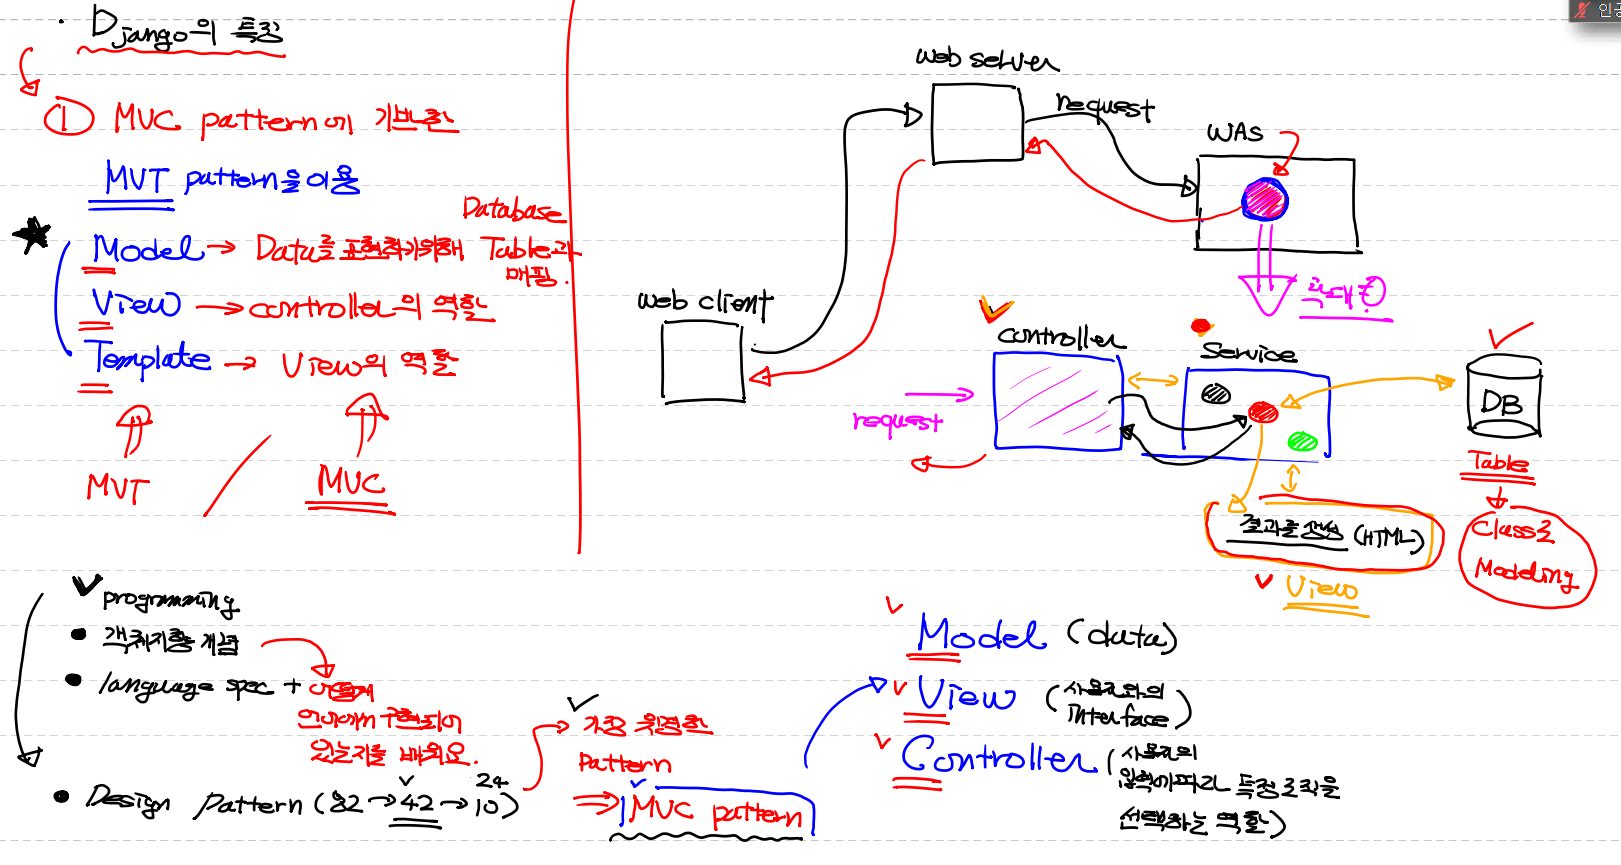 · Django의 특징
① MVC pattern에 기반한
MVT pattern을 이용
Model → Data를 표현하기위해 Database Table과 매핑.
View → controller의 역할
Template → View의 역할
MVT / MVC
web server
request
WAS
web client
확대
controller
Service
request
DB
Table
Class로
Modeling
결과를 생성 (HTML)
View
programming
객체지향 개념
language spec + 어떻게
언어에서 구현되어
있는지를 배워요.
Design pattern (82 → 42 → 10)
24
가장 유명한
pattern
MVC pattern
Model (data)
View (사용자와의
interface)
Controller (사용자의
입력에따라 특정로직을
선택하는 역할)
인공